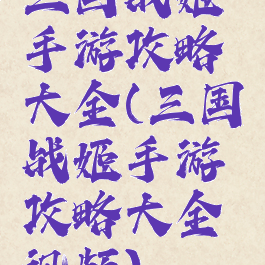 三国战姬
手游攻略
大全(三国
战姬手游
攻略大全
视频)